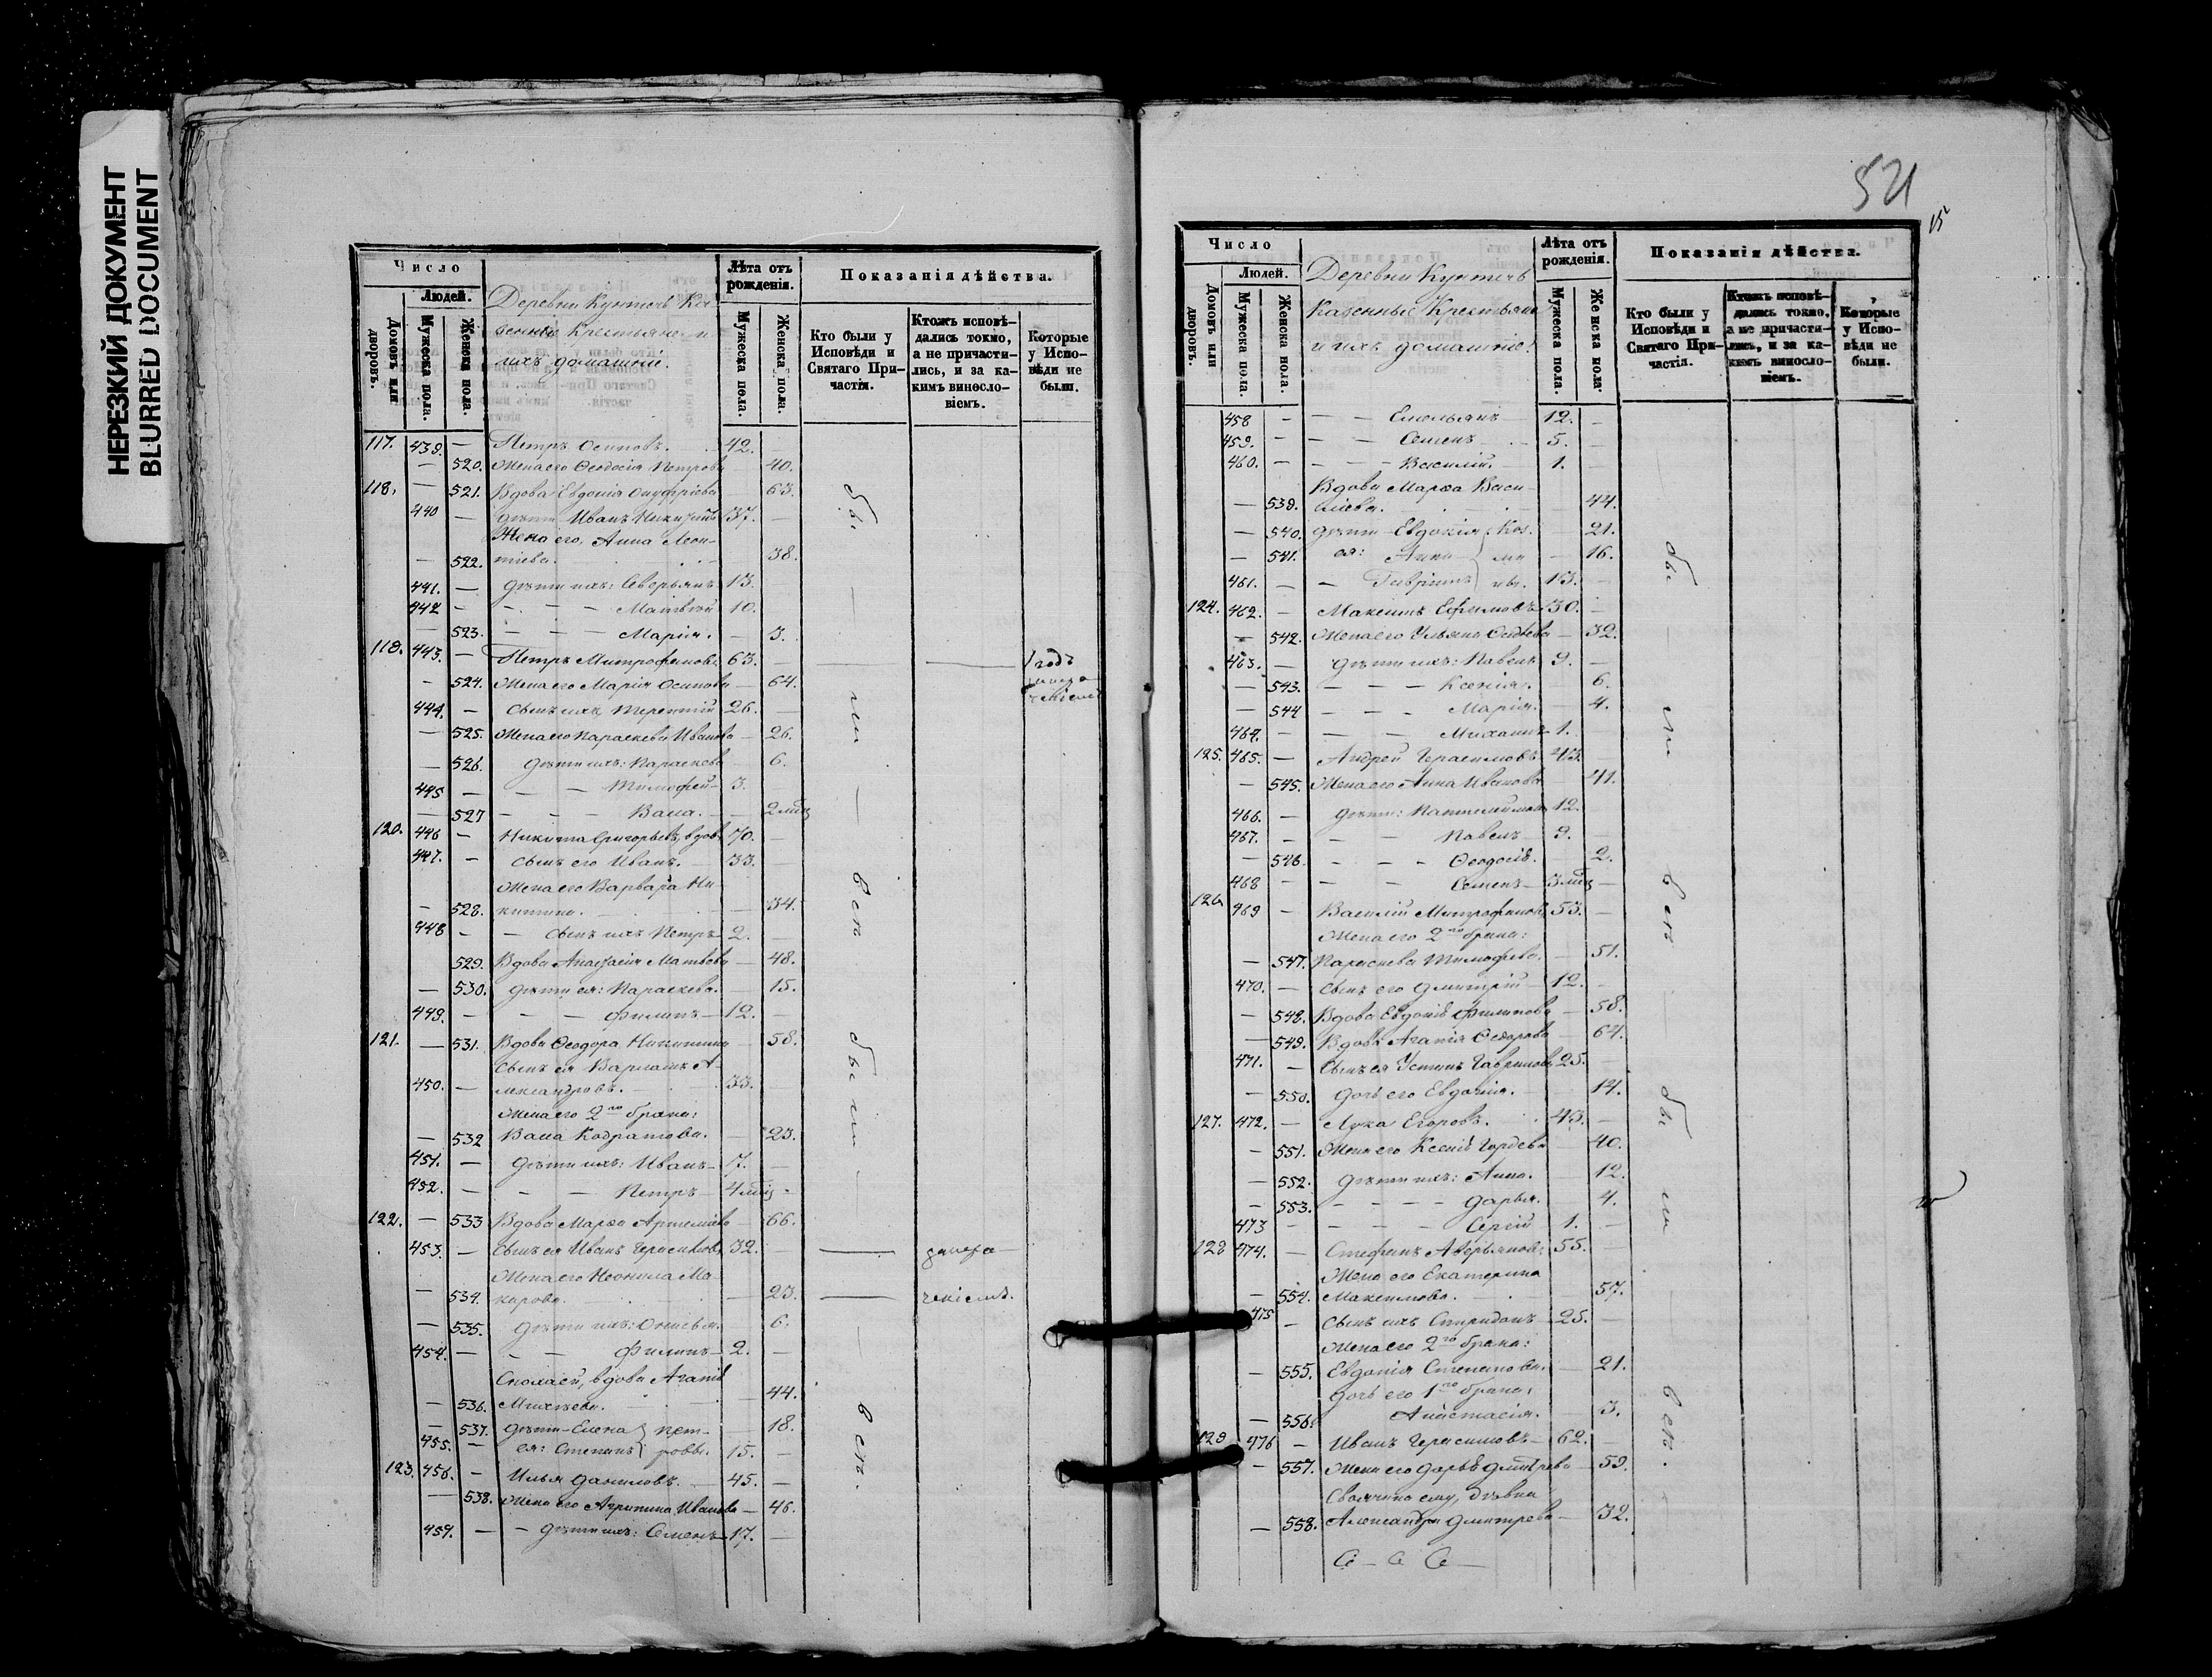 НЕРЕЗКИЙ ДОКУМЕНТ
BLURRED DOCUMENT
Число
Людей.
Домовъ или дворовъ.
Мужеска пола.
Женска пола.
Деревни Ка-
зенные крестьяне и
ихъ домашніе.
Лѣта отъ рожденія.
Мужеска пола.
Женска пола.
Показанія дѣйства.
Кто были у Исповѣди и Святаго При-частія.
Ктожъ исповѣ-дались токмо, а не причасти-лись, и за ка-кимъ винсло-віемъ.
Которые у Испо-вѣди не были.
117. 439. — Петръ Осиповъ. 42. —
— 520. Жена его Ѳеодосія Петрова — 40.
118. — 521. Вдова Евдокія Онуфріева — 63.
440 — дѣти Иванъ 37. —
Жена его, Анна Леон-
— 522. тіева. — 38.
441. — дѣти ихъ: Северьянъ 13. —
442 — — — Матвѣй 10.
— 523. — — — Марія. — 3.
119. 443. — Петръ Митрофановъ 63. —
— 524. Жена его Марія Осипова — 64.
444. — сынъ ихъ Терентій 26. —
— 525. Жена его Параскева Иванова — 26.
— 526. дѣти ихъ: Параскева 6.
445 — — — Тимофей — 3.
— 527 — — — Васса. — 2 мѣс
120. 446 — Никита Григорьевъ, вдов. 70. —
447. — сынъ его Иванъ. — 33. —
Жена его Варвара Ни-
— 528. китина. — 34.
448 — — сынъ ихъ Петръ 2.
529. Вдова Анастасія Матвѣева — 48.
— 530. дѣти ея: Параскева. — 15.
449. — — — Филипъ — 12. —
121. — 531. Вдова Ѳеодора Никитина — 58.
сынъ ея Варламъ А-
450. — лександровъ. 33.
Жена его 2го брака:
— 532 Васса Кодратова. — 23.
451. — дѣти ихъ: Иванъ — 7.
452. — — — Петръ — 4 мѣс —
122. — 533 Вдова Марѳа Артеміева — 66.
453. — сынъ ея Иванъ Герасимовъ 32. —
Жена его Неонила Ма-
— 534. карова. — 23.
— 535. дѣти ихъ: 6.
454. — — — Филипъ — 2. —
вдова Агапія
— 536. Михѣева. — 44.
— 537. дѣти — Елена } пет- — 18.
455. — ея: Степанъ } ровы. 15. —
123. 456. — Илья Даниловъ. — 45. —
— 538. Жена его Агрипина Иванова — 46.
459. — — дѣти ихъ: Семенъ — 17. —
были
всѣ
были
всѣ.
521
15
Число
Людей.
Домовъ или дворовъ.
Мужеска пола.
Женска пола.
Деревни
Казенные Крестьяне
и ихъ домашніе:
Лѣта отъ рожденія.
Мужеска пола.
Женска пола.
Показанія дѣйства.
Кто были у Исповѣди и Святаго При-частія.
Ктожъ исповѣ-дались токмо, а не причасти-лись, и за ка-кимъ винсло-віемъ.
Которые у Испо-вѣди не были.
458 — — — Емельянъ — 12. —
459. — — — Семенъ — 5. —
460. — — — Василій. — 1. —
Вдова Марѳа Васи-
— 539. лиева. — 44.
— 540. дѣти — Евдокія 21.
— 541. ея: Анна — 16.
461. — — Гавріилъ 13. —
124. 462. — Максимъ Ефимовъ 30. —
— 542. Жена его Ульяна — 32.
463. — дѣти ихъ: Павелъ 9. —
— 543. — — — Ксенія. — 6.
— 544 — — — Марія. — 4.
464. — — — Михаилъ 1. —
125. 465. — Андрей Герасимовъ 43.
— 545. Жена его Анна Иванова — 41.
466. — дѣти: Пантелеймонъ 12.
467. — — — Павелъ — 9. —
— 546. — — — Ѳеодосія. — 2.
468 — — — Семенъ — 3 мѣс —
126. 469 — Василій Митрофановъ 53. —
Жена его 2го брака:
— 547. Параскева Тимофеева. — 51.
470. — сынъ его Дмитрій — 12. —
— 548. Вдова Евдокія Филипова — 58.
— 549. Вдова Агапія Ѳедорова 64.
471. — сынъ ея Устинъ Гавриловъ 25. —
— 550. дочь его Евдокія. — 14.
127. 472. — Лука Егоровъ. 43. —
— 551. Жена его Ксенія Гордеева 40.
— 552. дѣти ихъ: Анна. — 12.
— 553. — — — Дарья. — 4.
473 — — — Сергій — 1. —
128 474. — Стефанъ Аверьяновъ 55. —
Жена его Екатерина
— 554. Максимова. — 57.
475 — сынъ ихъ Спиридонъ — 25. —
Жена его 2го брака:
— 555. Евдокія Степанова. — 21.
дочь его 1го брака,
— 556. Анастасія. — 3.
129 476 — Иванъ Герасимовъ — 62. —
— 557. Жена его Дарья Дмитрева — 59.
Своячина ему, дѣвка
— 558. Александра Дмитрева — 32.
были
всѣ
были
всѣ.